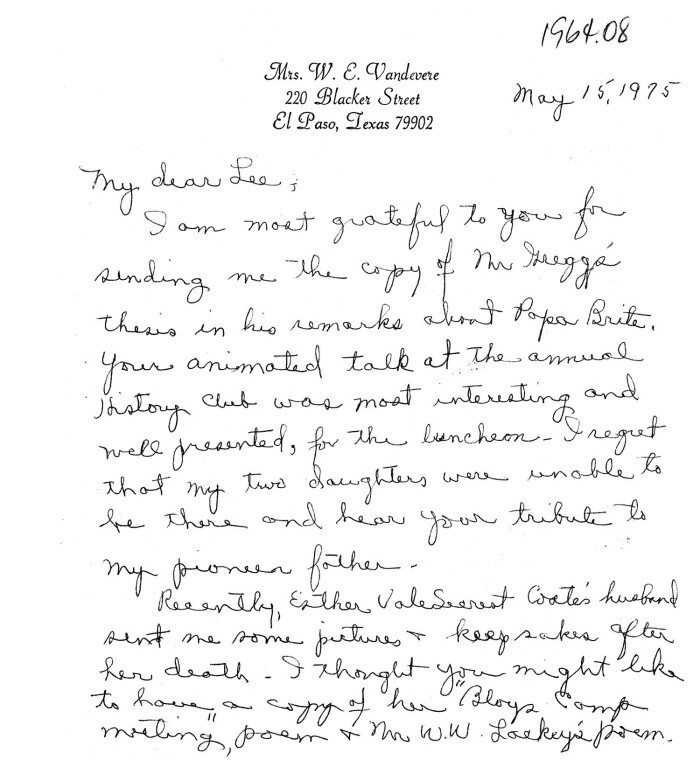 1964.08
Mrs. W. E. Vandevere
220 Blacker Street
El Paso, Texas 79902
May 15, 1975
My dear Lee;
I am most grateful to you for
sending me the copy of Mr Gregg's
thesis in his remarks about Papa Brite.
Your animated talk at the annual
History Club was most interesting and
well presented, for the luncheon - I regret
that my two daughters were unable to
be there and hear your tribute to
my pioneer father -
Recently, Esther Vale Secrest Coate's husband
sent me some pictures & keepsakes after
her death - I thought you might like
to have a copy of her "Bloys Camp
meeting", poem & Mr W.W. Lackey's poem.